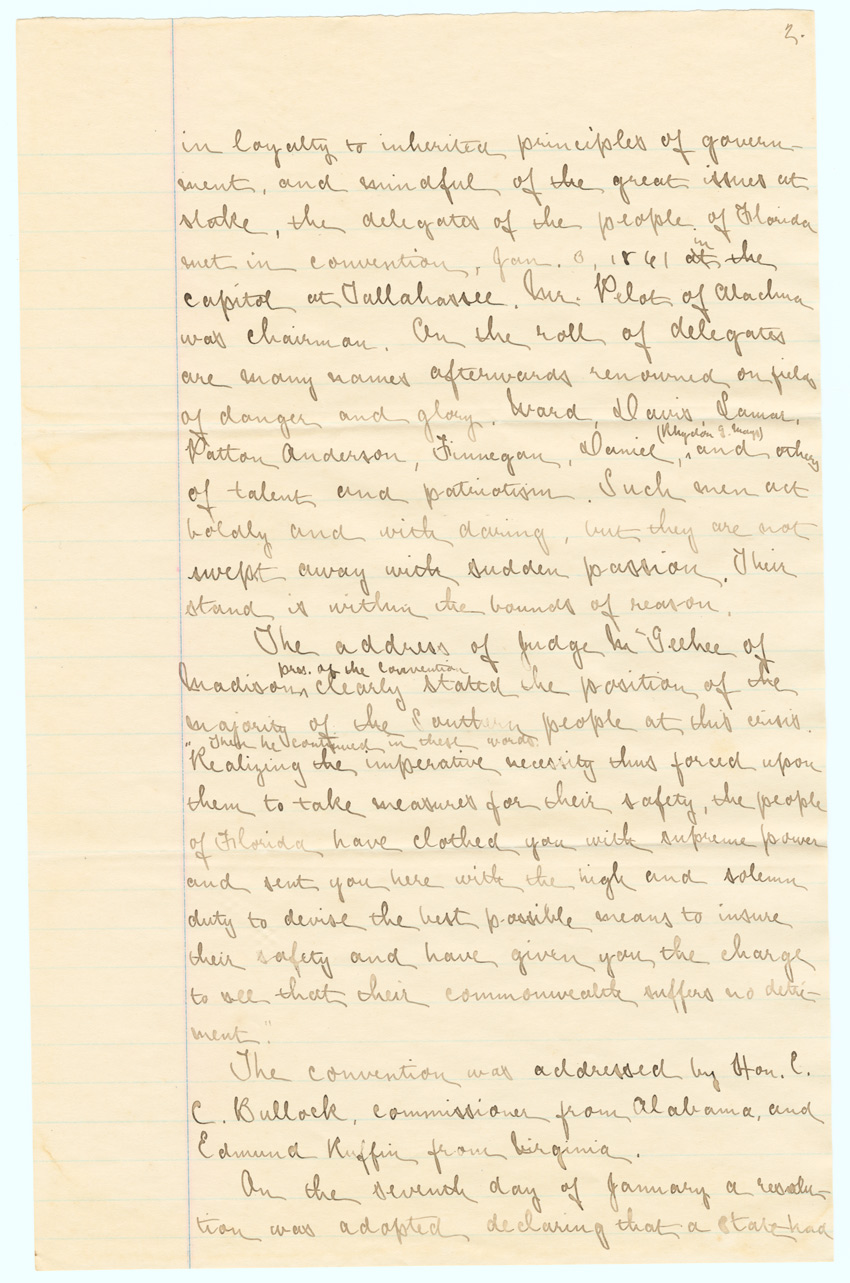 2.
in loyalty to inherited principles of govern-
ment, and mindful of the great issues at
stake, the delegates of the people of Florida
met in convention, Jan. 3, 1861 in the
capitol at Tallahassee. Mr. Pelot of Alachua
was chairman. On the roll of delegates
are many names afterwards renowned on fields
of danger and glory. Ward, Davis, Lamar,
(Rhydon G. Mays)
Patton Anderson, Finnegan, Daniel, ^ and others
of talent and patriotism. Such men act
boldly and with daring, but they are not
swept away with sudden passion. Their
stand is within the bounds of reason.
The address of Judge McGeehee of
pres. of the convention
Madison, ^ clearly stated the position of the
majority of the Southern people at this crisis.
Then he continued in these words:
"Realizing the imperative necessity thus forced upon
them to take measures for their safety, the people
of Florida have clothed you with supreme power
and sent you here with the high and solemn
duty to devise the best possible means to insure
their safety and have given you the charge
to see that their commonwealth suffers no detri-
ment."
The convention was addressed by Hon. C.
C. Bullock, commissioner from Alabama, and
Edmund Ruffin from Virginia.
On the seventh day of January a resolu-
tion was adopted declaring that a State had